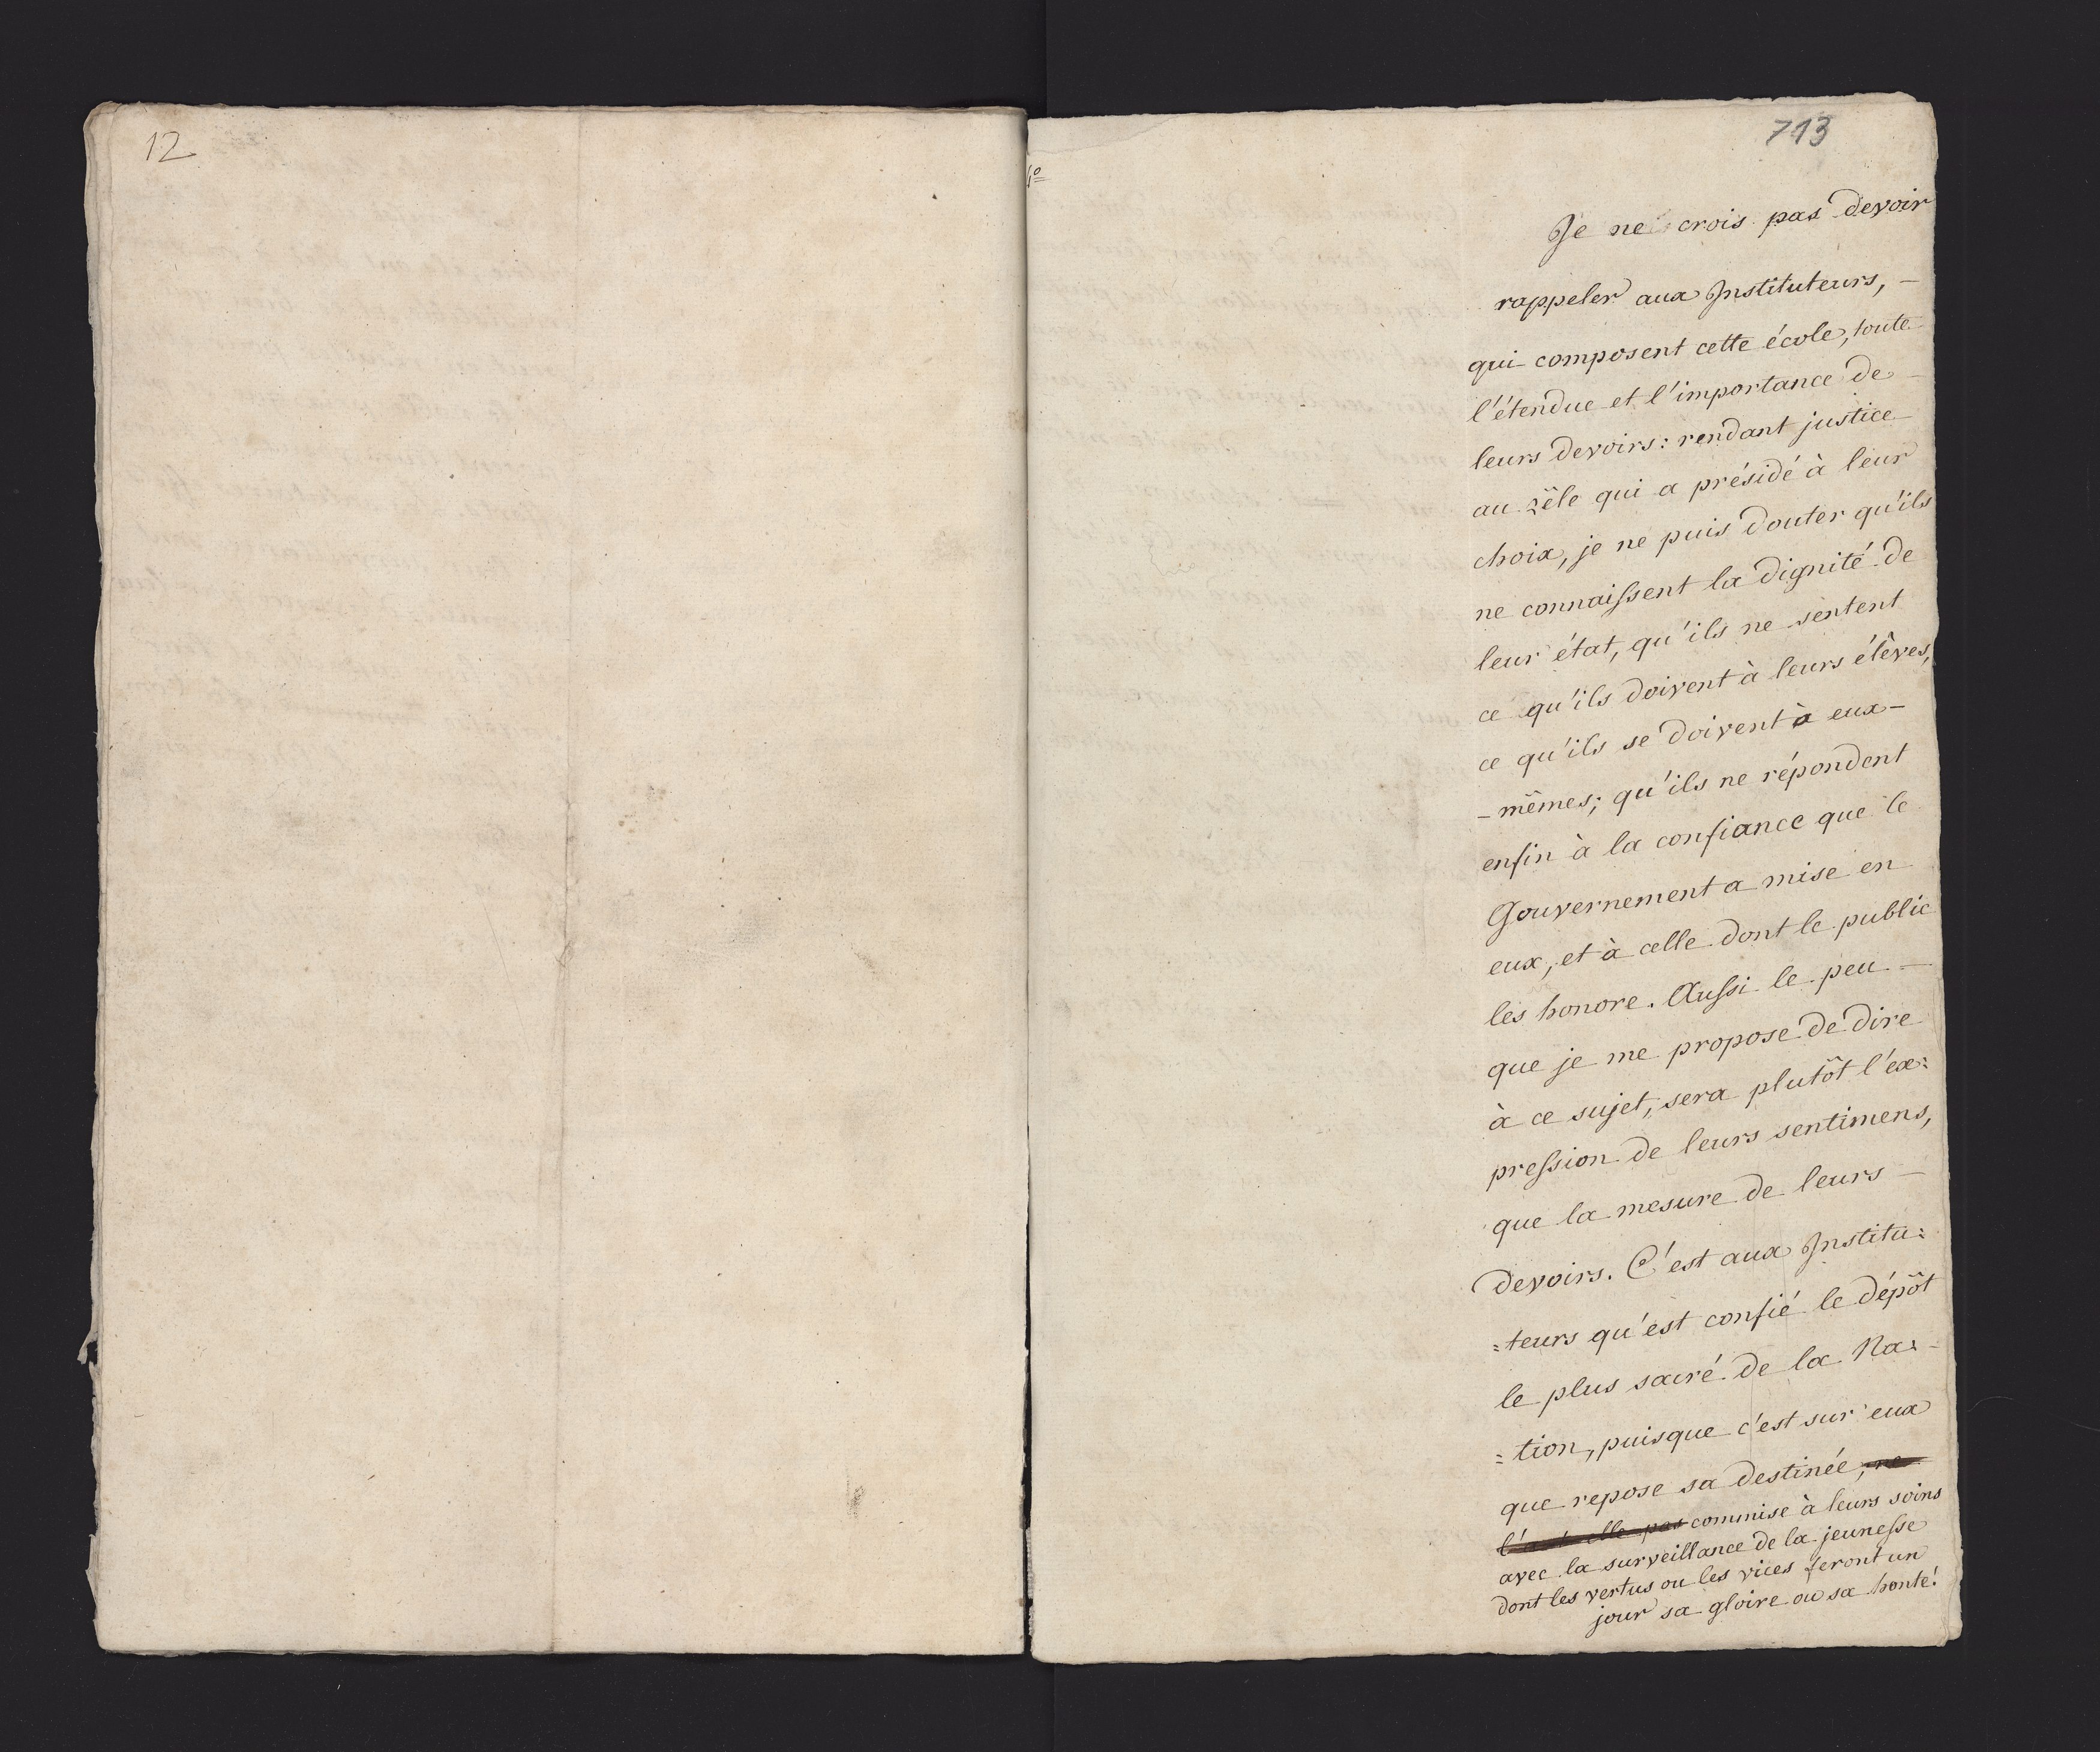 12
713
Je ne crois pas devoir
rappeler aux Instituteurs, —
qui composent cette école, toute
l'étendue et l'importance de —
leurs devoirs: rendant justice
au zêle qui a présidé à leur
choix, je ne puis douter qu'ils
ne connaissent la dignité de
leur état, qu'ils ne sentent
ce qu'ils doivent à leurs élêves,
ce qu'ils se doivent à eux-
-mêmes; qu'ils ne répondent
enfin à la confiance que le
Gouvernement a mise en
eux, et à celle dont le public
les honore. Aussi le peu —
que je me propose de dire
à ce sujet, sera plutôt l'ex:
pression de leurs sentimens,
que la mesure de leurs —
devoirs. C'est aux Institu:
:teurs qu'est confié le dépôt
le plus sacré de la Na: -
:tion, puisque c'est sur eux
que repose sa destinée, ne
elle pas commise à leurs soins
avec la surveillance de la jeunesse
dont les vertus ou les vices feront un
jour sa gloire ou sa honte!